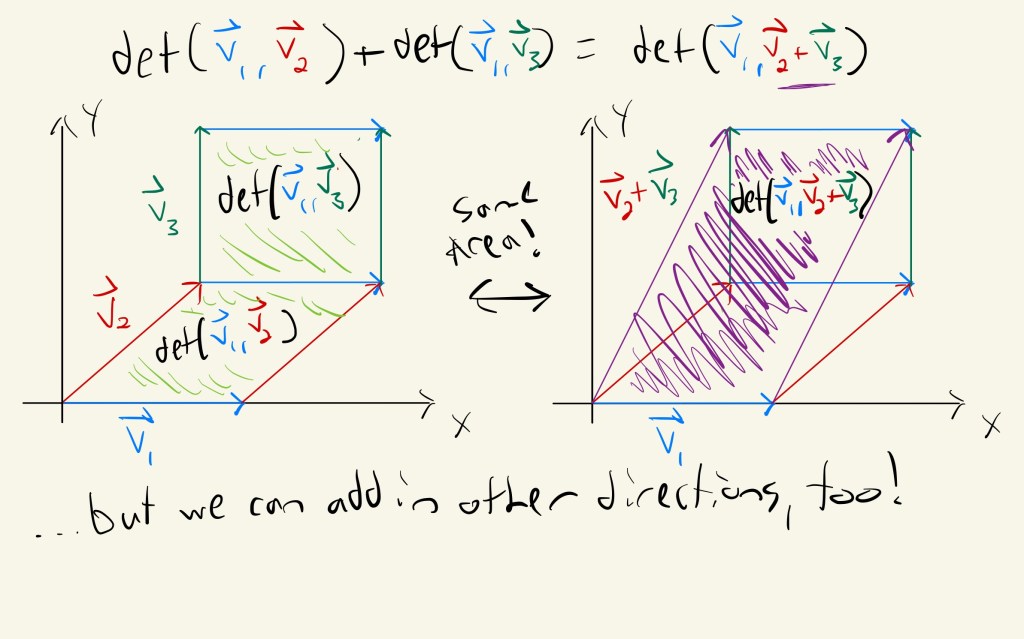 det(v⃗₁, v⃗₂) + det(v⃗₁, v⃗₃) = det(v⃗₁, v⃗₂+v⃗₃)
Y
v⃗₃
det(v⃗₁, v⃗₃)
v⃗₂
det(v⃗₁, v⃗₂)
v⃗₁
X
same
Area!
Y
v⃗₂+v⃗₃
det(v⃗₁, v⃗₂+v⃗₃)
v⃗₁
X
...but we can add in other directions, too!